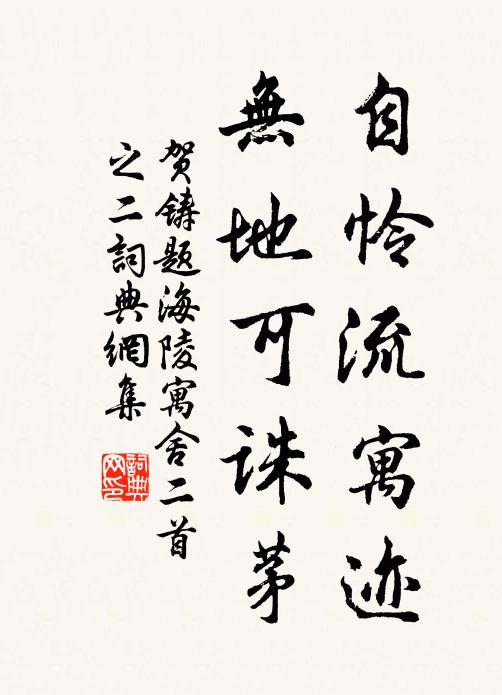 自怜流寓迹
無地可誅茅
贺鋳题海陵寓舍二首
之二詞典網集
詞典
网印